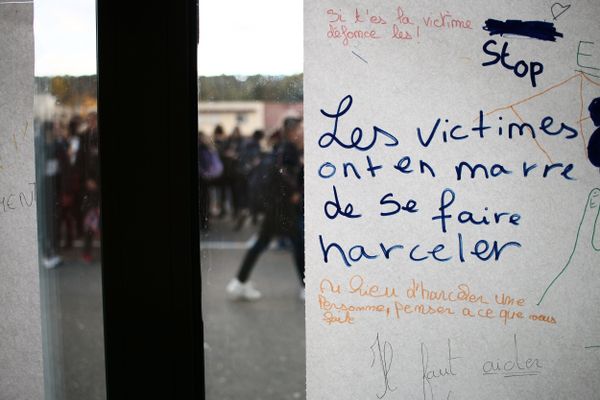 Si t'es la victime
défonce les !
Stop
E
Les victimes
ont en marre
de se faire
harceler
Au lieu d'harceler une
Personne, penser a ce que vous
fait
Il faut aider
MENT